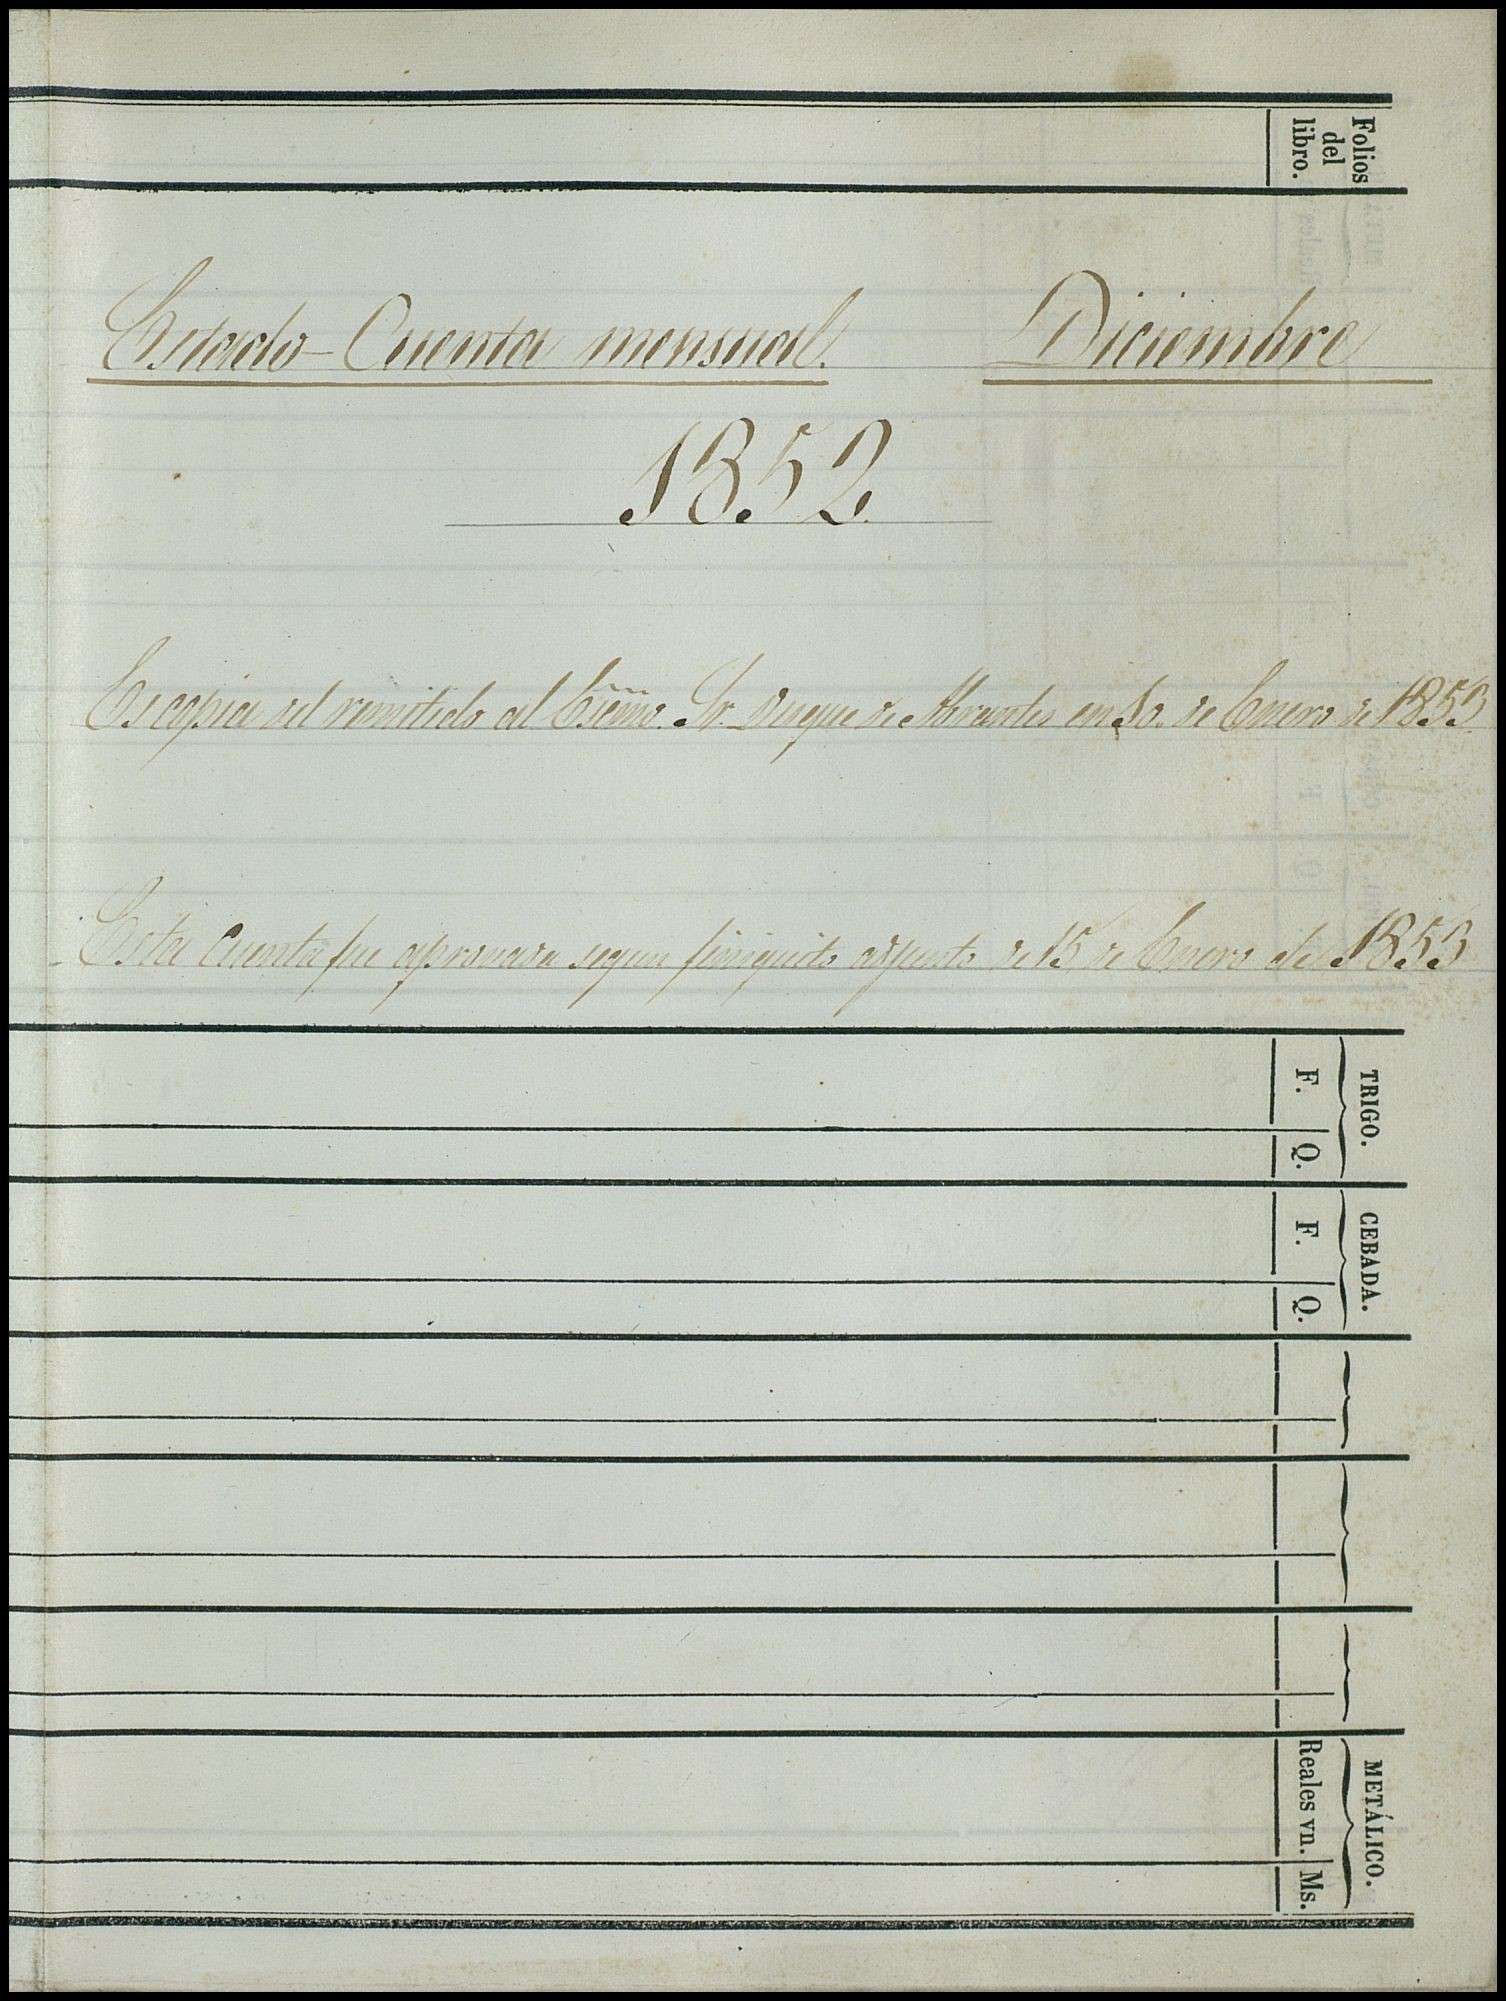 Folios
del
libro.
Estado-Cuenta mensual. Diciembre
1852
Es copia del remitido al Escmo. Sr. Duque de Abrantes en 10. de Enero de 1853
Esta Cuenta fue aprovada segun finiquito adjunto de 15 de Enero de 1853
TRIGO.
F. Q.
CEBADA.
F. Q.
METÁLICO.
Reales vn. Ms.